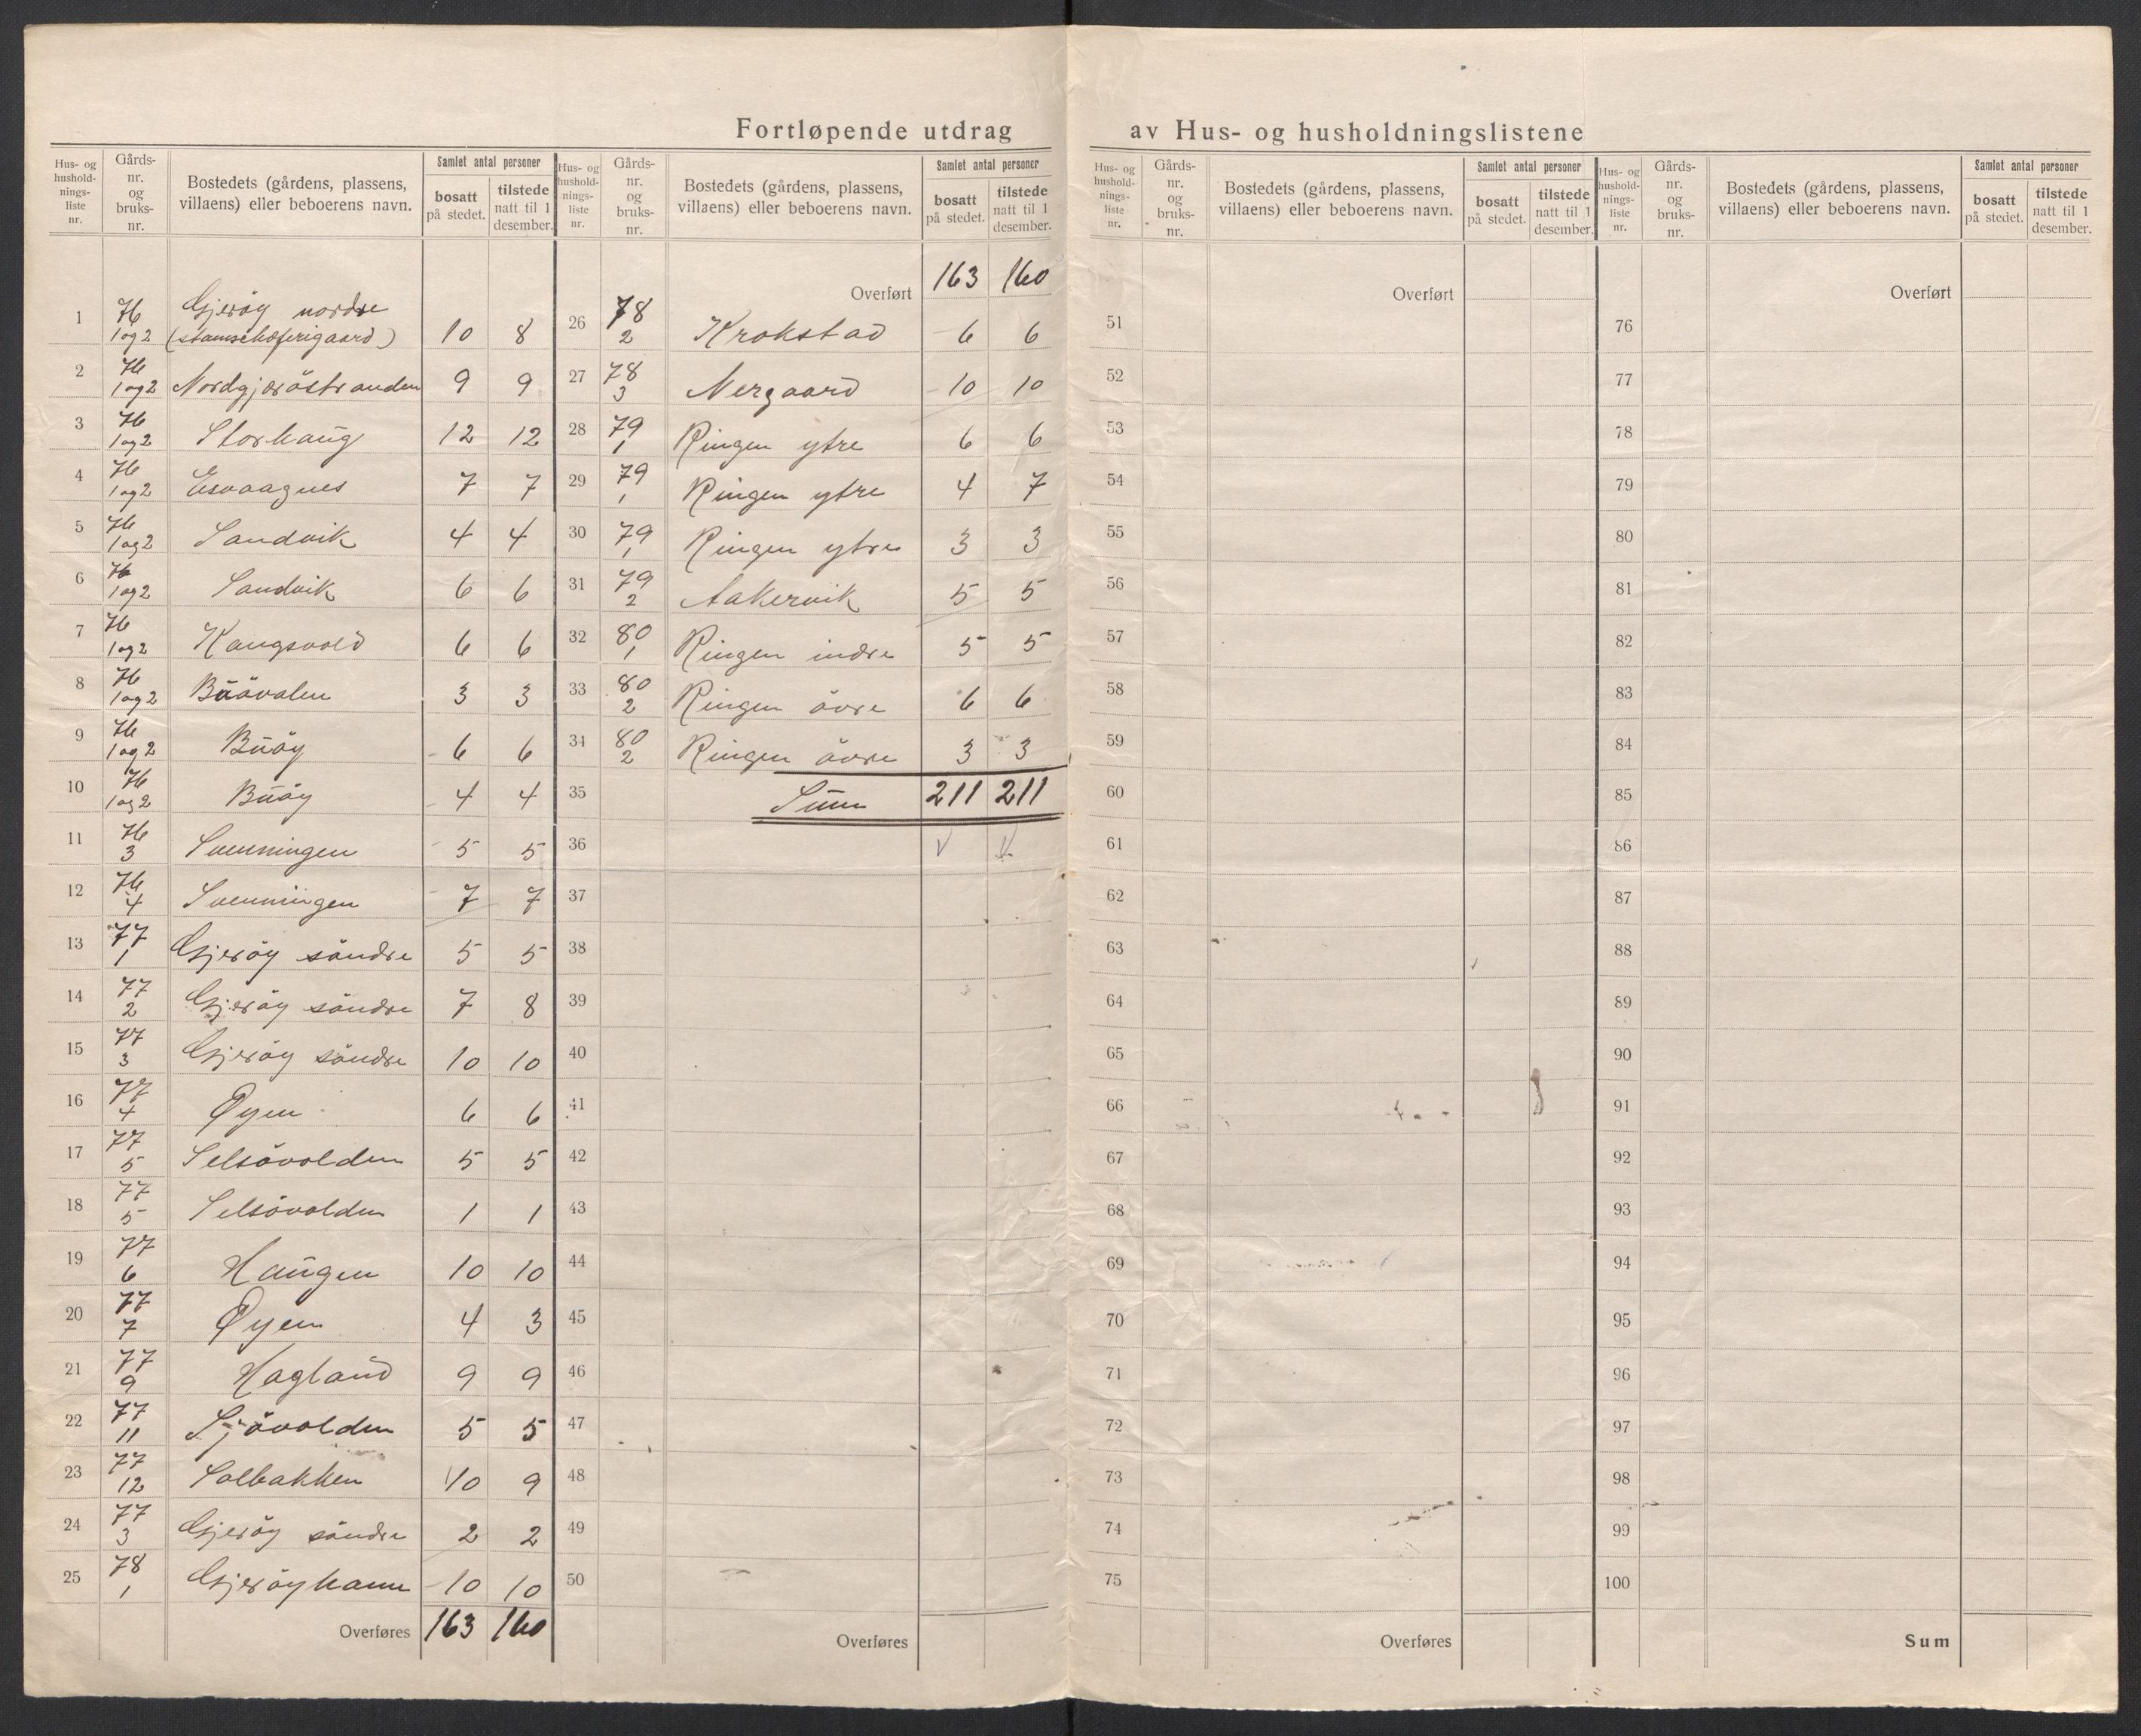 Fortløpende utdrag av Hus- og husholdningslistene
Hus- og husholdnings-liste nr. Gårds-nr. og bruks-nr. Bostedets (gårdens, plassens, villaens) eller beboerens navn. Samlet antal personer bosatt på stedet. tilstede natt til 1 desember.
1 76 1 og 2 Gjerøy nordre (stamschæferigaard) 10 8
2 76 1 og 2 Nordgjæröstranden 9 9
3 76 1 og 2 Storhaug 12 12
4 76 1 og 2 Esvaagnes 7 7
5 76 1 og 2 Sandvik 4 4
6 76 1 og 2 Sandvik 6 6
7 76 1 og 2 6 6
8 76 1 og 2 Buövalen 3 3
9 76 1 og 2 Buöy 6 6
10 76 1 og 2 Buöy 4 4
11 76 3 Svenningen 5 5
12 76 4 Svenningen 7 7
13 77 1 Gjeröy söndre 5 5
14 77 2 Gjeröy söndre 7 8
15 77 3 Gjeröy söndre 10 10
16 77 4 Øyen 6 6
17 77 5 Selsövolden 5 5
18 77 5 Selsövolden 1 1
19 77 6 Haugen 10 10
20 77 7 Øyen 4 3
21 77 9 Hagland 9 9
22 77 11 Sjövolden 5 5
23 77 12 Solbakken 10 9
24 77 3 Gjeröy söndre 2 2
25 78 1 Gjeröyhamn 10 10
Overføres 163 160
Hus- og husholdnings-liste nr. Gårds-nr. og bruks-nr. Bostedets (gårdens, plassens, villaens) eller beboerens navn. Samlet antal personer bosatt på stedet. tilstede natt til 1 desember.
Overført 163 160
26 78 2 Krokstad 6 6
27 78 3 Nergaard 10 10
28 79 1 Ringen ytre 6 6
29 79 1 Ringen ytre 4 7
30 79 1 Ringen ytre 3 3
31 79 2 Aakervik 5 5
32 80 1 Ringen indre 5 5
33 80 2 Ringen övre 6 6
34 80 2 Ringen övre 3 3
35 Sum 211 211
36
37
38
39
40
41
42
43
44
45
46
47
48
49
50
Overføres
Hus- og husholdnings-liste nr. Gårds-nr. og bruks-nr. Bostedets (gårdens, plassens, villaens) eller beboerens navn. Samlet antal personer bosatt på stedet. tilstede natt til 1 desember.
Overført
51
52
53
54
55
56
57
58
59
60
61
62
63
64
65
66
67
68
69
70
71
72
73
74
75
Overføres
Hus- og husholdnings-liste nr. Gårds-nr. og bruks-nr. Bostedets (gårdens, plassens, villaens) eller beboerens navn. Samlet antal personer bosatt på stedet. tilstede natt til 1 desember.
Overført
76
77
78
79
80
81
82
83
84
85
86
87
88
89
90
91
92
93
94
95
96
97
98
99
100
Sum